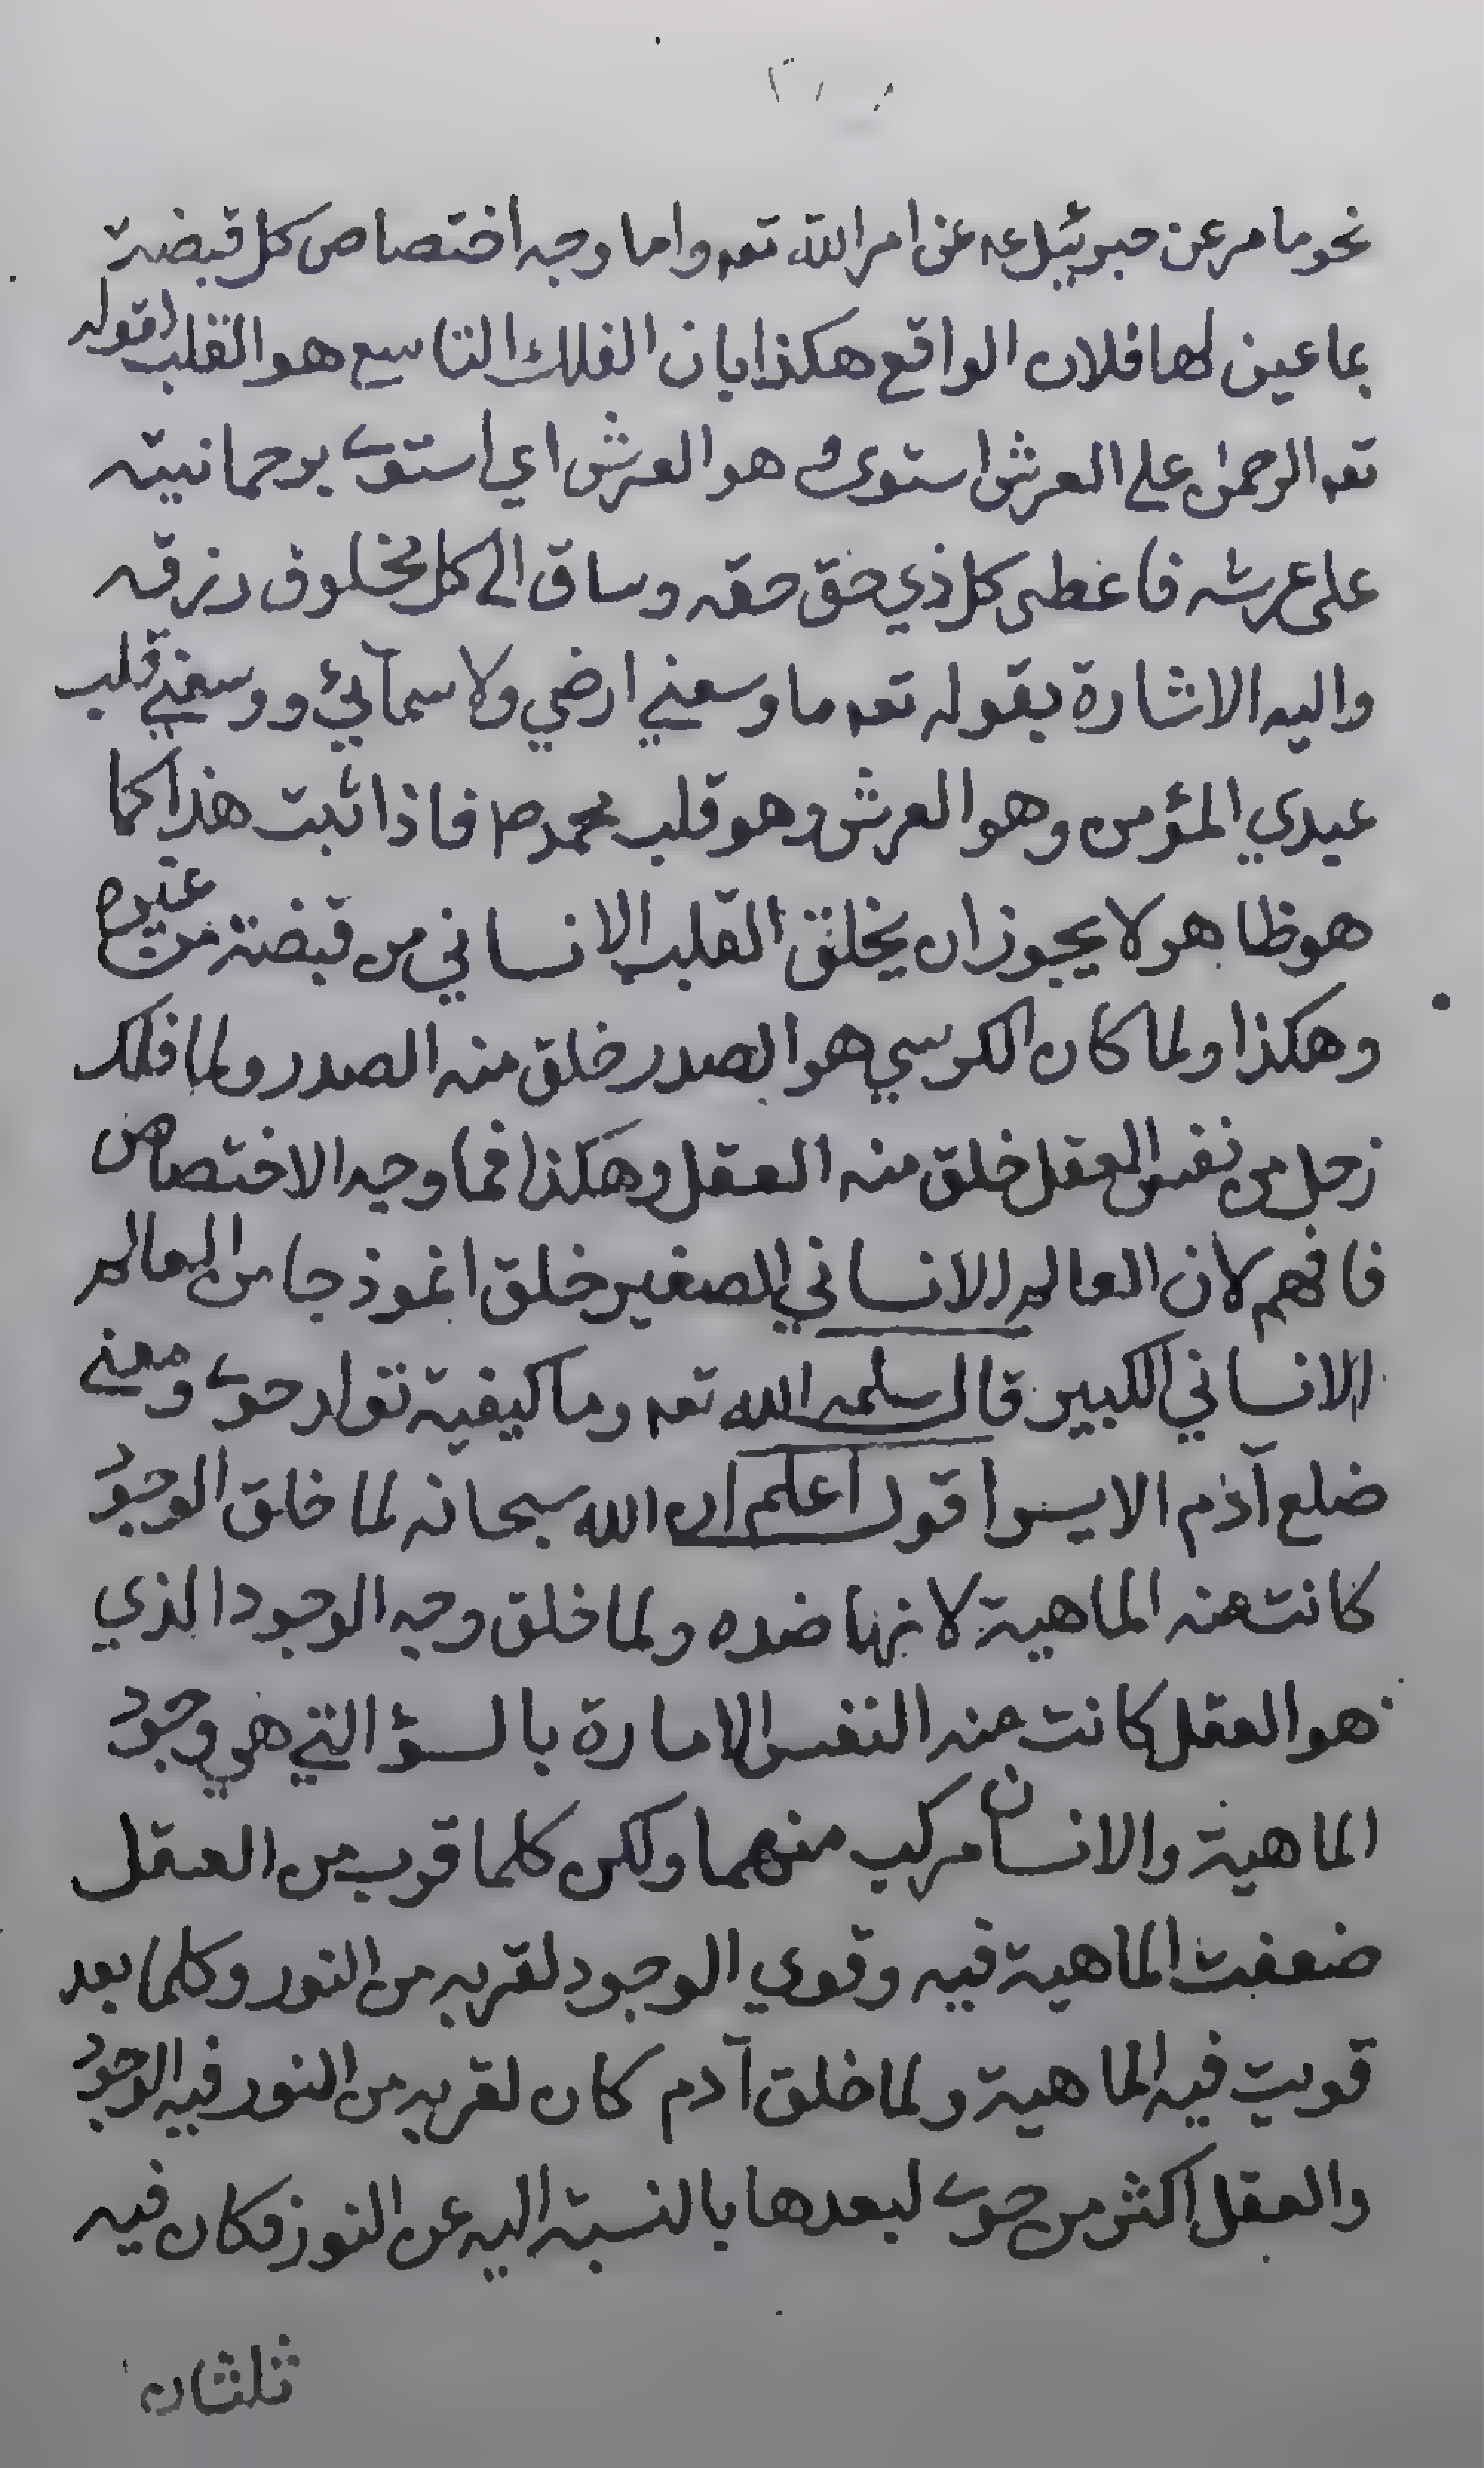 نحو ما مر عن جبرئيل عه عن امر الله تعه واما وجه اختصاص كل قبضة
بما عين لها فلان الواقع هكذا بان الفلك التاسع هو القلب لقوله
تعه الرحمن على العرش استوى و هو العرش اي استوى برحمانيته
على عرشه فاعطى كل ذي حق حقه وساق الى كل مخلوق رزقه
واليه الاشارة بقوله تعه ما وسعني ارضي ولا سمآئي و ووسعني قلب
عبدي المؤمن وهو العرش وهو قلب محمد ص فاذا ثبت هذا كما
هو ظاهر لا يجوز ان يخلق القلب الانساني من قبضة من غيره
وهكذا ولما كان الكرسي هو الصدر خلق منه الصدر ولما فلك
زحل من نفس العقل خلق منه العقل وهكذا فما وجه الاختصاص
فافهم لان العالم الانساني الصغير خلق انموذجا من العالم
الانساني الكبير قال سلمه الله تعه وما كيفية تولد حوى ومعنى
ضلع آدم الايسر اقول اعلم ان الله سبحانه لما خلق الوجود
كانت منه الماهية لانها ضده ولما خلق وجه الوجود الذي
هو العقل كانت منه النفس الامارة بالسؤ التي هي وجود
الماهية والانسان مركب منهما ولكن كلما قرب من العقل
ضعفت الماهية فيه وقوي الوجود لقربه من النور وكلما بعد
قويت فيه الماهية ولما خلق آدم كان لقربه من النور فيه الوجود
والعقل اكثر من حوى لبعدها بالنسبة اليه عن النور فكان فيه
ثلثان